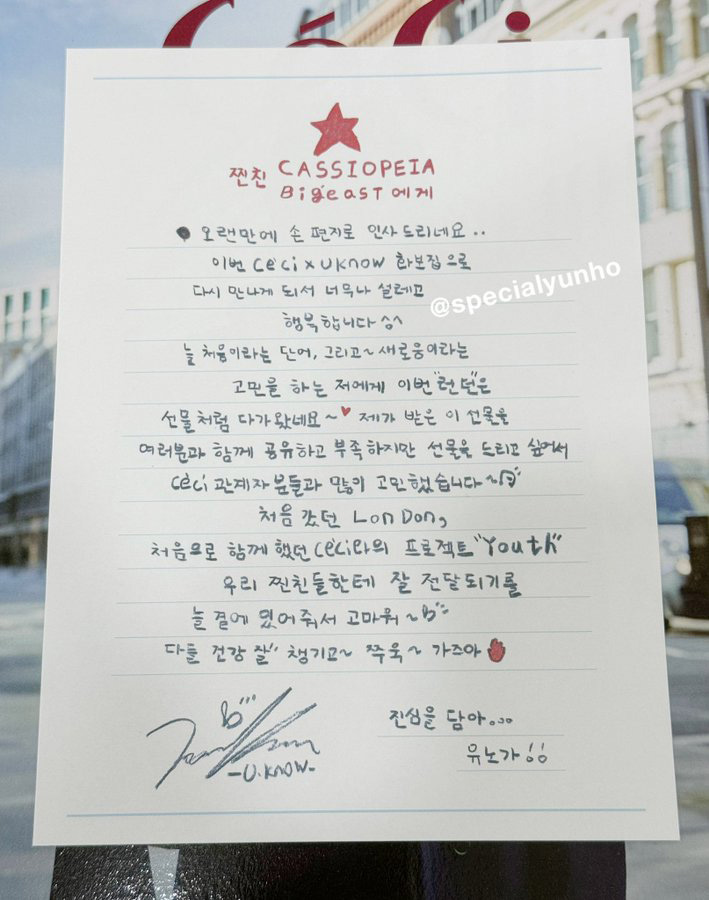 CéCi
찐친 CASSIOPEIA
BigeasT에게
오랜만에 손 편지로 인사드리네요..
이번 CéCi x UKNOW 화보집으로
다시 만나게 되서 너무나 설레고
@specialyunho
행복합니다 ^^
늘 처음이라는 단어, 그리고~ 새로움이라는
고민을 하는 저에게 이번 "런던"은
선물처럼 다가왔네요~♥ 제가 받은 이 선물을
여러분과 함께 공유하고 부족하지만 선물을 드리고 싶어서
CéCi 관계자 분들과 많이 고민했습니다~
처음 갔던 LonDon,
처음으로 함께했던 CéCi와의 프로젝트 "Youth"
우리 찐친들한테 잘 전달되기를
늘 곁에 있어줘서 고마워~
다들 건강 잘" 챙기고~ 쭈욱~ 가즈아
진심을 담아...
유노가 !!
-U.KNOW-